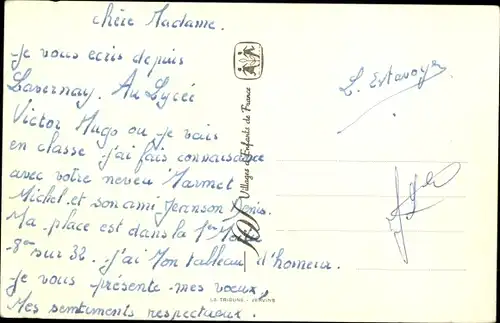 chère Madame.
Je vous ecris depuis
Lavernay. Au Lycée
Victor Hugo ou je vais
en classe j'ai fais connaissance
avec votre neveu Marmet
Michel et son ami Jeanson Denis.
Ma place est dans la 1ère Moitié
8ème sur 32. j'ai Mon tableau d'honneur.
Je vous présente mes vœux,
Mes sentiments respectueux.
Villages d'Enfants de France
SOS
LA TRIBUNE -
L. Estavoyer